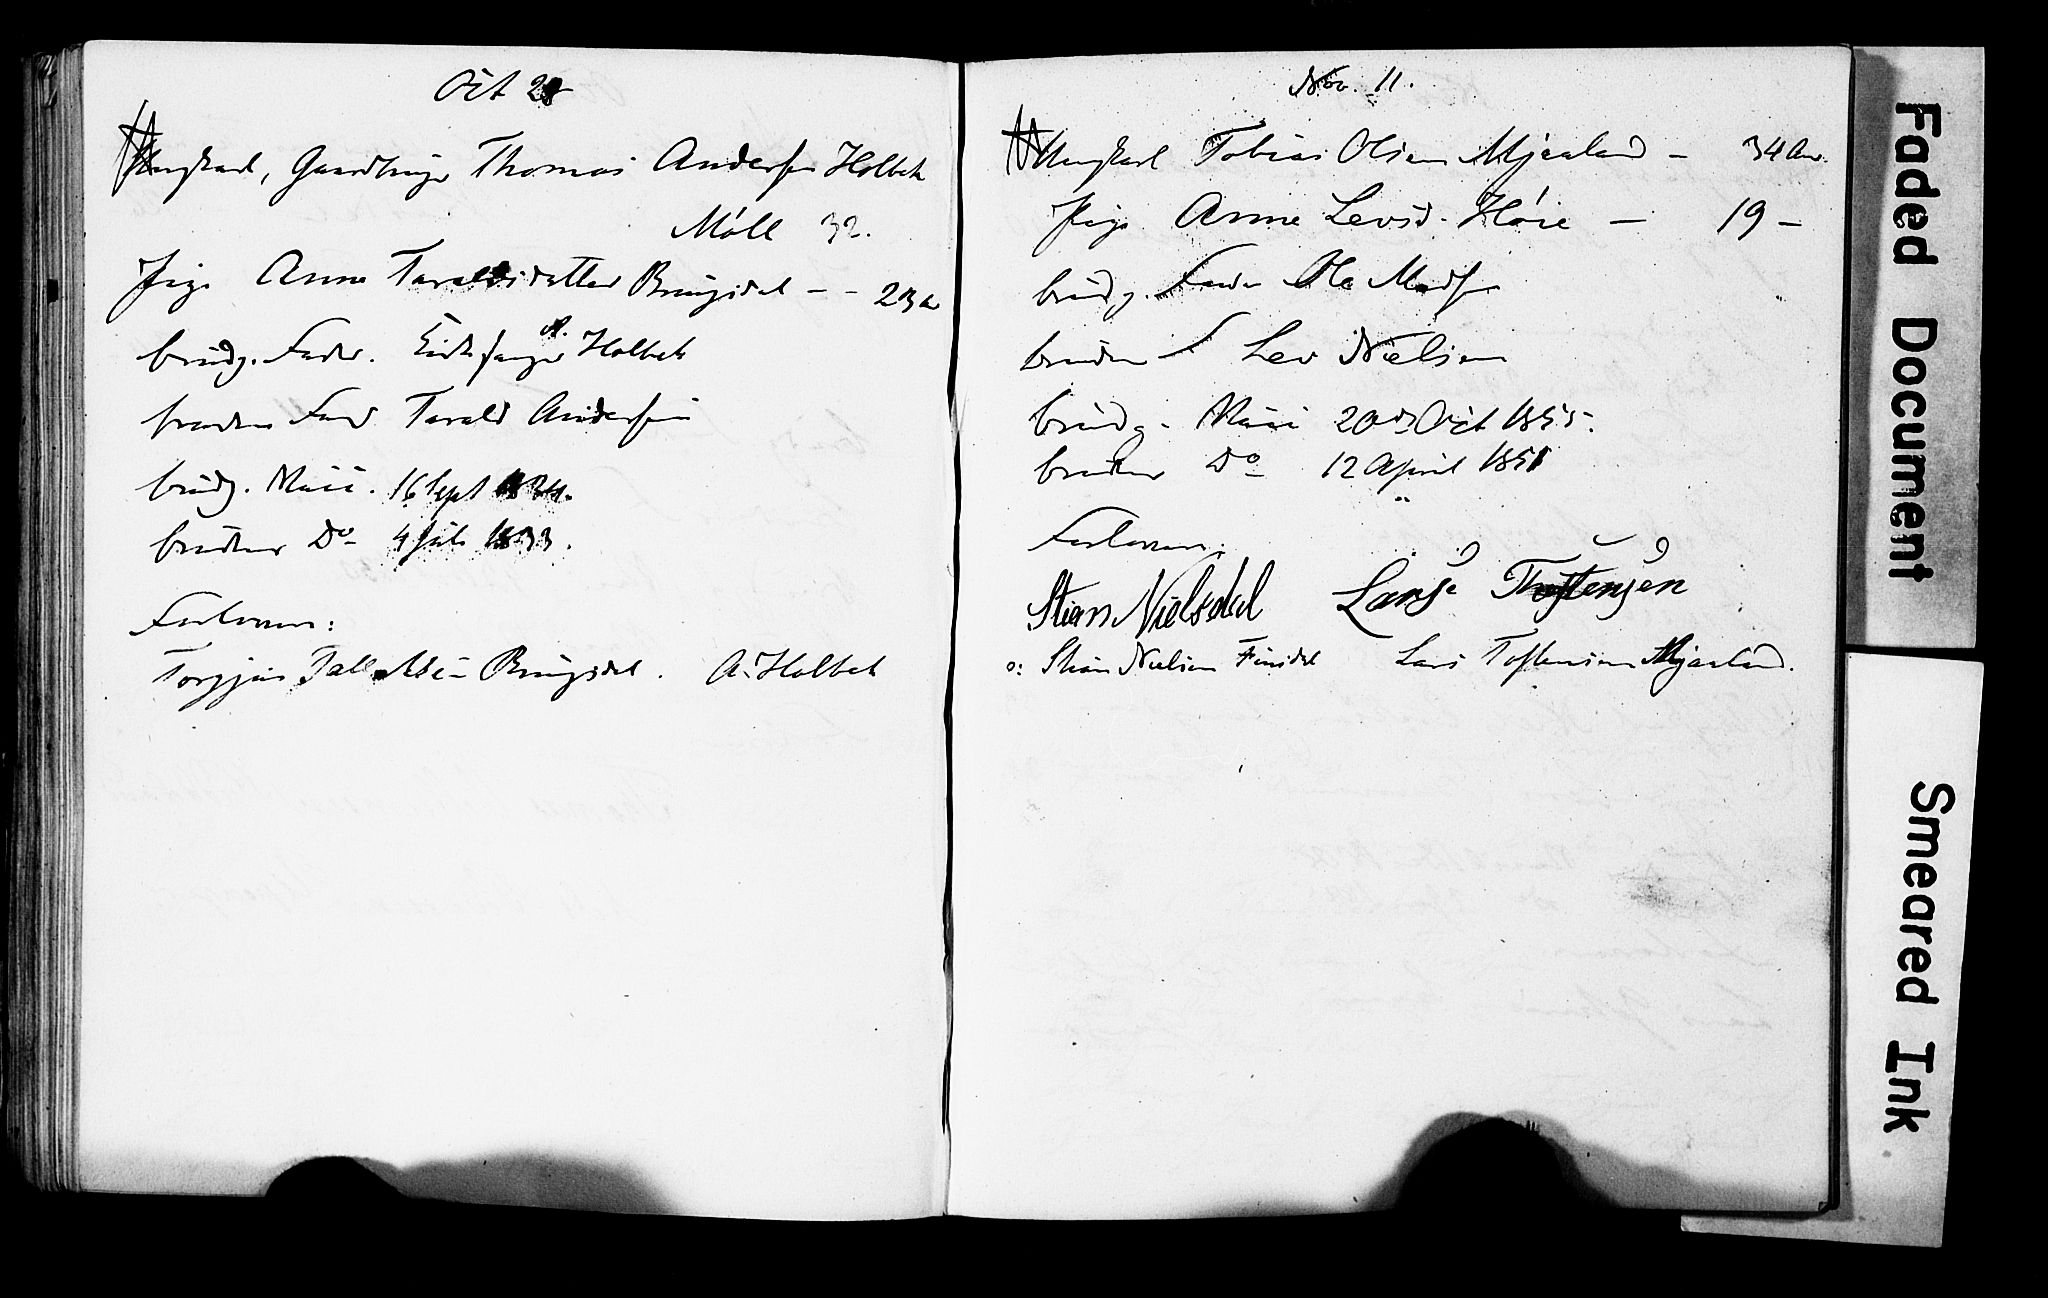 Oct 28
Ungkarl, Gaardbruger Thomas Andersen Holbek
Møll 32.
Pige Anne Taraldsdatter Bringsdal - - 23 a
brudg. Fader. A. Holbek
brudens Fad Tarald Andersen
brudg. Vacc. 16 Sept
brudens Do 4 Juli 1833.
Forlovere:
Bringsdal. A. Holbek
Nov. 11.
Ungkarl Tobias Olsen Mjaaland - 34 Aar
Pige Anne Levsd. Høie - 19 -
brudg. Fader Ole Madsen
bruden F Lev Nielsen
brudg. Vacc 20de Oct 1835.
bruden Do 12 April 1851
Forlovere:
Stian Nielsdal Lars Thostensen
o: Stian Nielsen Finsdal Lars Tostensen Mjaaland.
Faded Document
Smeared Ink